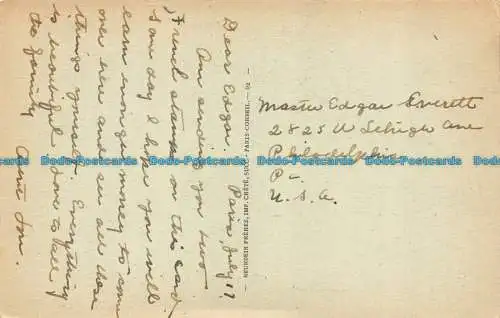 Paris, July 17
Dear Edgar.
Am sending you two
French stamps on this card.
Some day I hope you will
earn enough money to come
over here and see all these
things yourself. Everything
is beautiful. Love to all
the family
Aunt
NEURDEIN FRÈRES, IMP. CRÉTÉ, SUCC. - PARIS-CORBEIL. - 92
Master Edgar Everett
2825 W Lehigh Ave
Philadelphia
Pa.
U.S.A.
Dodo-Postcards Dodo-Postcards Dodo-Postcards Dodo-Postcards Dodo-Postcards